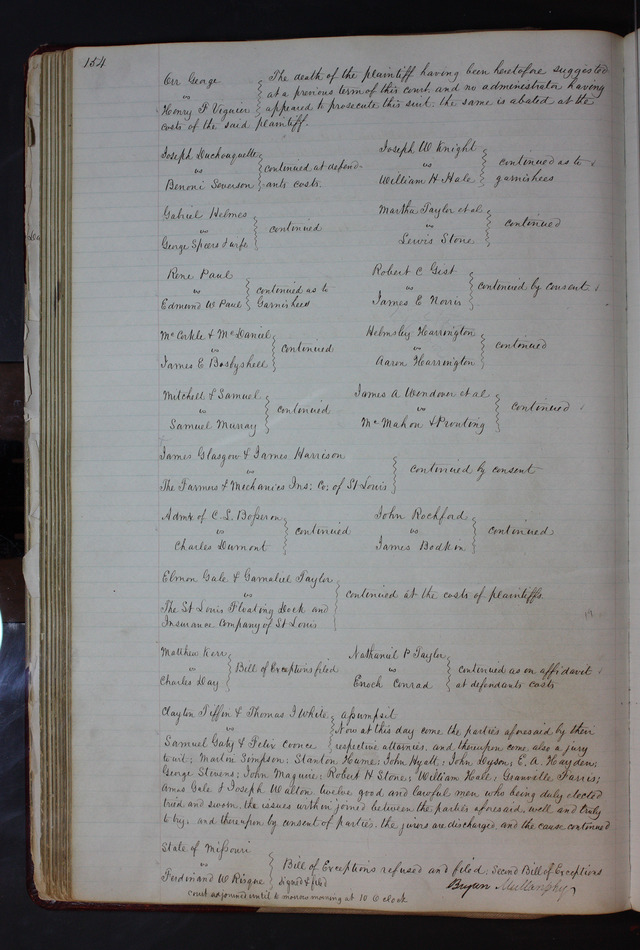 154
Orr George
vs
Henry F Viguier
The death of the plaintiff having been heretofore suggested
at a previous term of this court, and no administrator having
appeared to prosecute this suit. the same is abated at the
costs of the said plaintiff.
Joseph Duchouquette
vs
Benoni Severson
continued at defend-
ants costs.
Joseph W Knight
vs
William H Hale
continued as to
garnishees
Gabriel Helmes
vs
George Speers & wife
continued
Martha Taylor et al
vs
Lewis Stone
continued
Rene Paul
vs
Edmund W Paul
continued as to
Garnishees
Robert C Gist
vs
James E Norris
continued by consent
McCorkle & McDaniel
vs
James E Bosbyshell
continued
Helmsley Harrington
vs
Aaron Harrington
continued
Mitchell & Samuel
vs
Samuel Murray
continued
James A Wendover et al
vs
McMahon & Prouting
continued
James Glasgow & James Harrison
vs
The Farmers & Mechanics Ins: Co: of St Louis
continued by consent
Admx of C. L. Bosseron
vs
Charles Dumont
continued
John Rochford
vs
James Bodkin
continued
Elmon Gale & Gamaliel Taylor
vs
The St Louis Floating Dock and
Insurance Company of St Louis
continued at the costs of plaintiffs
Matthew Kerr
vs
Charles Day
Bill of Exceptions filed
Nathaniel P Taylor
vs
Enoch Conrad
continued as on affidavit
at defendants costs
Clayton Tiffin & Thomas J White
vs
Samuel Gaty & Felix Coonce
assumpsit
Now at this day come the parties aforesaid by their
respective attornies, and thereupon come also a jury
towit; Martin Simpson; Stanton Hume; John Hyatt; John Dyson; E. A. Hayden;
George Stevens; John Maguire; Robert H Stone; William Hale; Granville Farris;
Amos Gale & Joseph Walton twelve good and lawful men, who being duly elected
tried and sworn, the issues within joined between the parties aforesaid, well and truly
to try, and thereupon by consent of parties, the jurors are discharged, and the cause continued
State of Missouri
vs
Ferdinand W Risque
Bill of Exceptions refused and filed; Second Bill of Exceptions
signed & filed
Court adjourned until to morrow morning at 10 O clock
Bryan Mullanphy